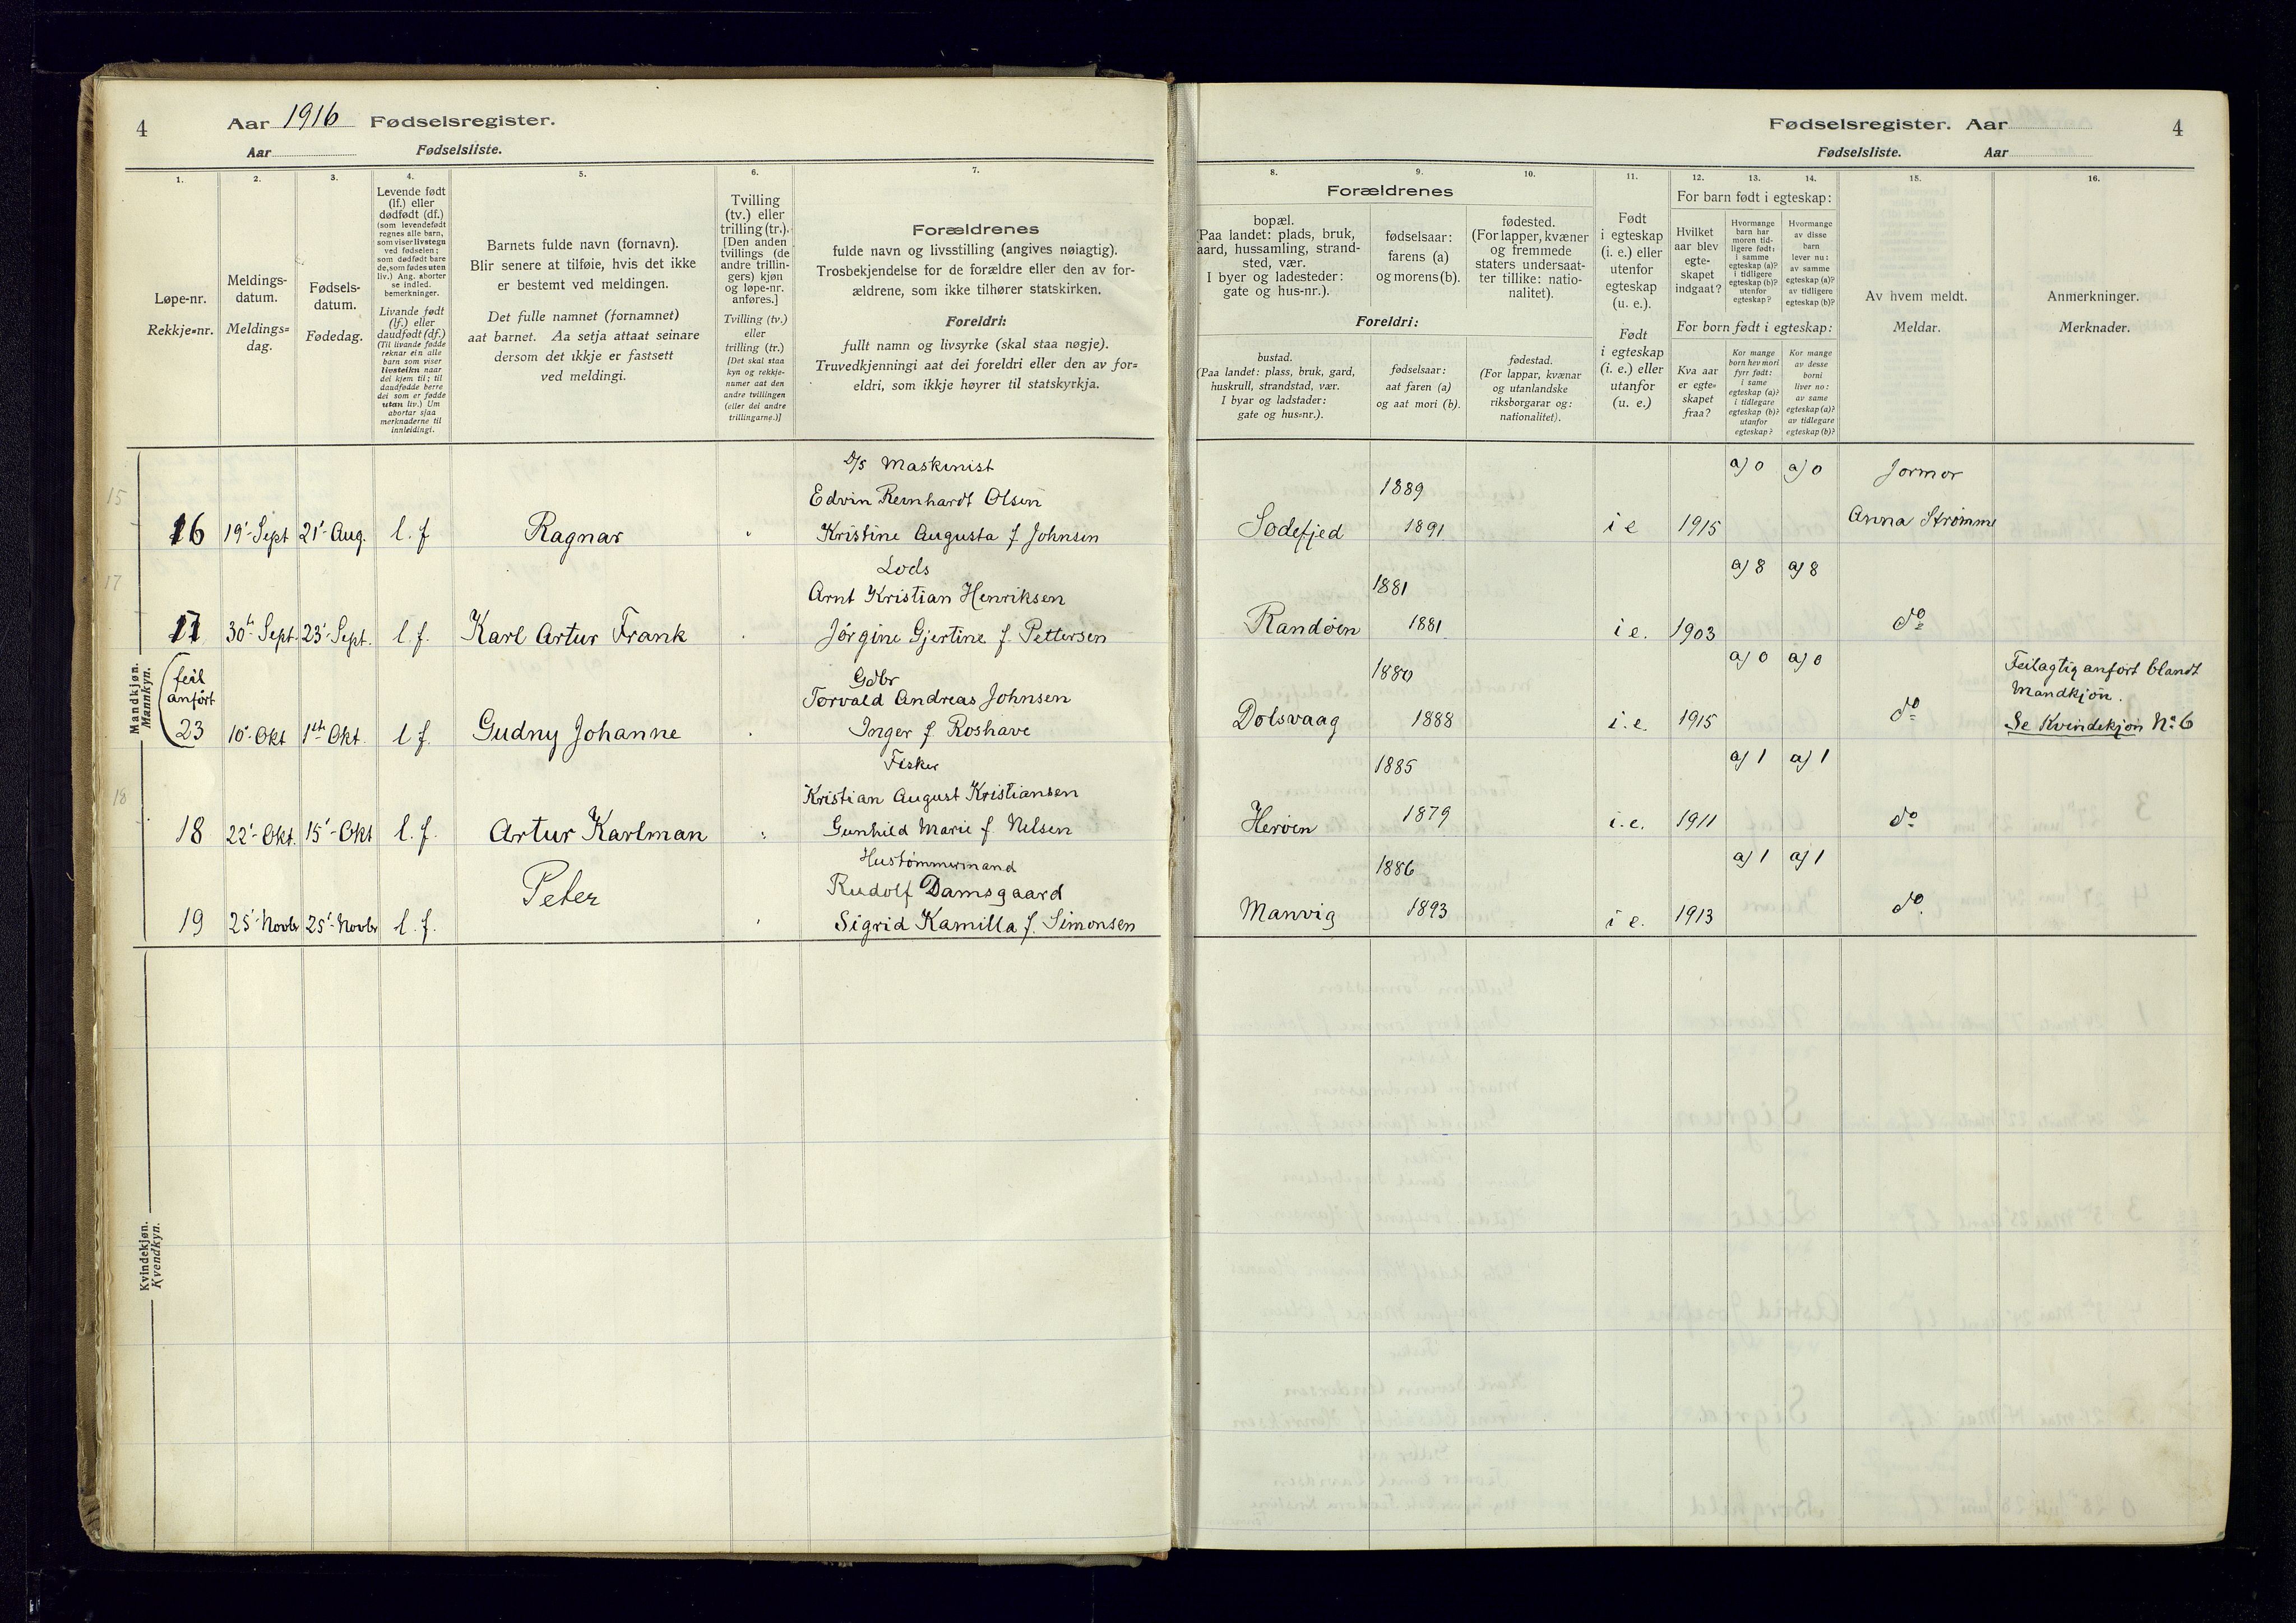 4
Aar 1916 Fødselsregister.
Aar Fødselsliste.
1.
2.
3.
4.
5.
6.
7.
Løpe-nr.
Rekkje=nr.
Meldings-
datum.
Meldings=
dag.
Fødsels-
datum.
Fødedag.
Levende født
(lf.) eller
dødfødt (df.)
(som levendefødt
regnes alle barn,
som viser livstegn
ved fødselen;
som dødfødt bare
de, som fødes uten
liv.) Ang. aborter
se indled.
bemerkninger.
Livande født
(lf.) eller
daudfødt (df.)
(Til livande fødde
reknar ein alle
barn som viser
livsteikn naar
dei kjem til; til
daudfødde berre
dei som er fødde
utan liv.) Um
abortar sjaa
merknaderne til
innleidingi.
Barnets fulde navn (fornavn).
Blir senere at tilføie, hvis det ikke
er bestemt ved meldingen.
Det fulle namnet (fornamnet)
aat barnet. Aa setja attaat seinare
dersom det ikkje er fastsett
ved meldingi.
Tvilling
(tv.) eller
trilling (tr.).
[Den anden
tvillings (de
andre trillin-
gers) kjøn
og løpe-nr.
anføres.]
Tvilling (tv.)
eller
trilling (tr.)
[Det skal staa
kyn og rekkje-
numer aat den
andre tvillingen
(eller dei andre
trillingarne.)]
Forældrenes
fulde navn og livsstilling (angives nøiagtig).
Trosbekjendelse for de forældre eller den av for-
ældrene, som ikke tilhører statskirken.
Foreldri:
fullt namn og livsyrke (skal staa nøgje).
Truvedkjenningi aat dei foreldri eller den av for=
eldri, som ikkje høyrer til statskyrkja.
Mandkjøn.
Mannkyn.
15
D/S Maskinist
Edvin Reinhardt Olsen
16 19' Sept 21' Aug. l. f Ragnar Kristine Augusta f Johnsen
17
Lods
Arnt Kristian Henriksen
17 30te Sept. 23' Sept. l. f. Karl Artur Frank Jørgine Gjertine f. Pettersen
(feil
anført
23 10' Okt 1ste Okt. l f. Gudny Johanne
Gdbr
Torvald Andreas Johnsen
Inger f Roshave
18
Fisker
Kristian August Kristiansen
18 22' Okt. 15' Okt l. f. Artur Karlman Gunhild Marie f. Nilsen
Hustømmermand
Rudolf Damsgaard
19 25' Novbr 25' Novbr l. f. Peter Sigrid Kamilla f. Simonsen
Kvindekjøn.
Kvendkyn.
Fødselsregister. Aar 4
Fødselsliste. Aar
8.
9.
10.
11.
12.
13.
14.
15.
16.
Forældrenes
bopæl.
(Paa landet: plads, bruk,
aard, hussamling, strand-
sted, vær.
I byer og ladesteder:
gate og hus-nr.).
fødselsaar:
farens (a)
og morens (b).
fødested.
(For lapper, kvæner
og fremmede
staters undersaat-
ter tillike: natio-
nalitet).
Foreldri:
bustad.
(Paa landet: plass, bruk, gard,
huskrull, strandstad, vær.
I byar og ladstader:
gate og hus=nr.).
fødselsaar:
aat faren (a)
og aat mori (b).
fødestad.
(For lappar, kvænar
og utanlandske
riksborgarar og:
nationalitet).
Født
i egteskap
(i. e.) eller
utenfor
egteskap
(u. e.).
Født
i egteskap
(i. e.) eller
utanfor
(u. e.)
For barn født i egteskap:
Hvilket
aar blev
egte-
skapet
indgaat?
Hvormange
barn har
moren tid-
ligere født:
i samme
egteskap (a)?
i tidligere
egteskap (b)?
utenfor
egteskap?
Hvormange
av disse
barn
lever nu:
av samme
egteskap (a)?
av tidligere
egteskap (b)?
For born født i egteskap:
Kva aar
er egte=
skapet
fraa?
Kor mange
born hev mori
fyrr født:
i same
egteskap (a)?
i tidlegare
egteskap (b)?
utanfor
egteskap?
Kor mange
av desse
borni
liver no:
av same
egteskap (a)?
av tidlegare
egteskap (b)?
Av hvem meldt.
Meldar.
Anmerkninger.
Merknader.
a) 0 a) 0 Jormor
1889
Sodefjed 1891 i e 1915 Anna Strømme
a) 8 a) 8
1881
Randøen 1881 i e. 1903 do
a) 0 a) 0
1880
Dolsvaag 1888 i. e. 1915 do
Feilagtig anført blandt
Mandkjøn.
Se Kvindekjøn No 6
a) 1 a) 1
1885
Herøen 1879 i. e. 1911 do
a) 1 a) 1
1886
Manvig 1893 i e. 1913 do.